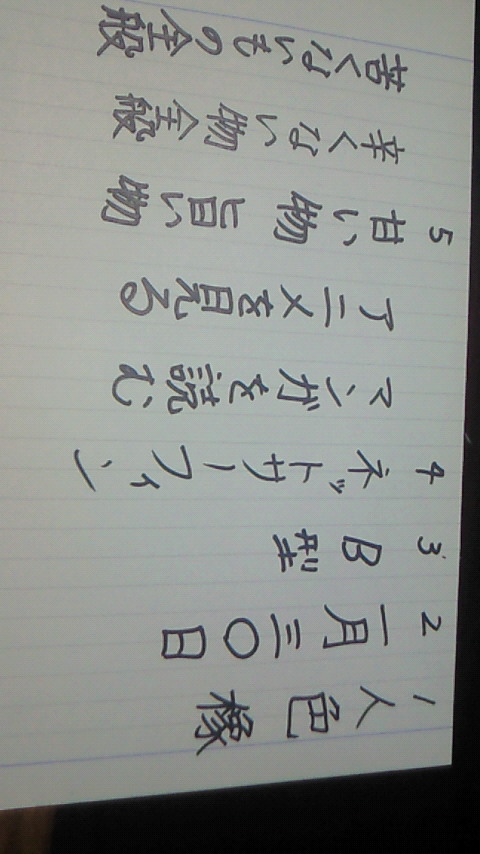 1 人色 橡
2 一月三〇日
3 B型
4 ネットサーフィン
マンガを読む
アニメを見る
5 甘い物 旨い物
辛くない物全般
苦くないもの全般